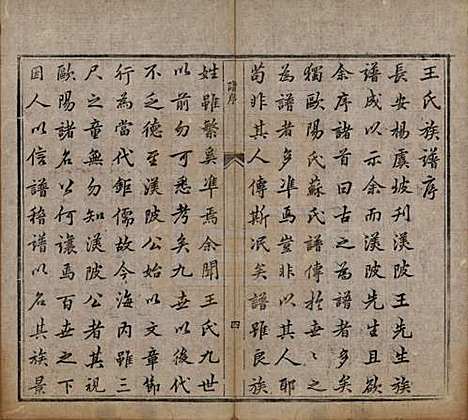 王氏族譜序
長安楊虞坡刊渼陂王先生族
譜成以示余而渼陂先生且欲
余序諸首曰古之為譜者多矣
獨歐陽氏蘇氏譜傳於世世之
為譜者多準焉豈非以其人耶
苟非其人傳斯泯矣譜雖良族
譜序
四
姓雖繁奚準焉余聞王氏九世
以前勿可悉考矣九世以後代
不乏德至渼陂公始以文章節
行為當代鉅儒故今海內雖三
尺之童無勿知渼陂公者其視
歐陽諸名公何讓焉百世之下
因人以信譜稽譜以名其族景